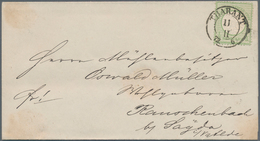 THARANT
11
II
Herrn Mühlenbesitzer
Oswald Müller
frei
Rauschenbach
by Sayda